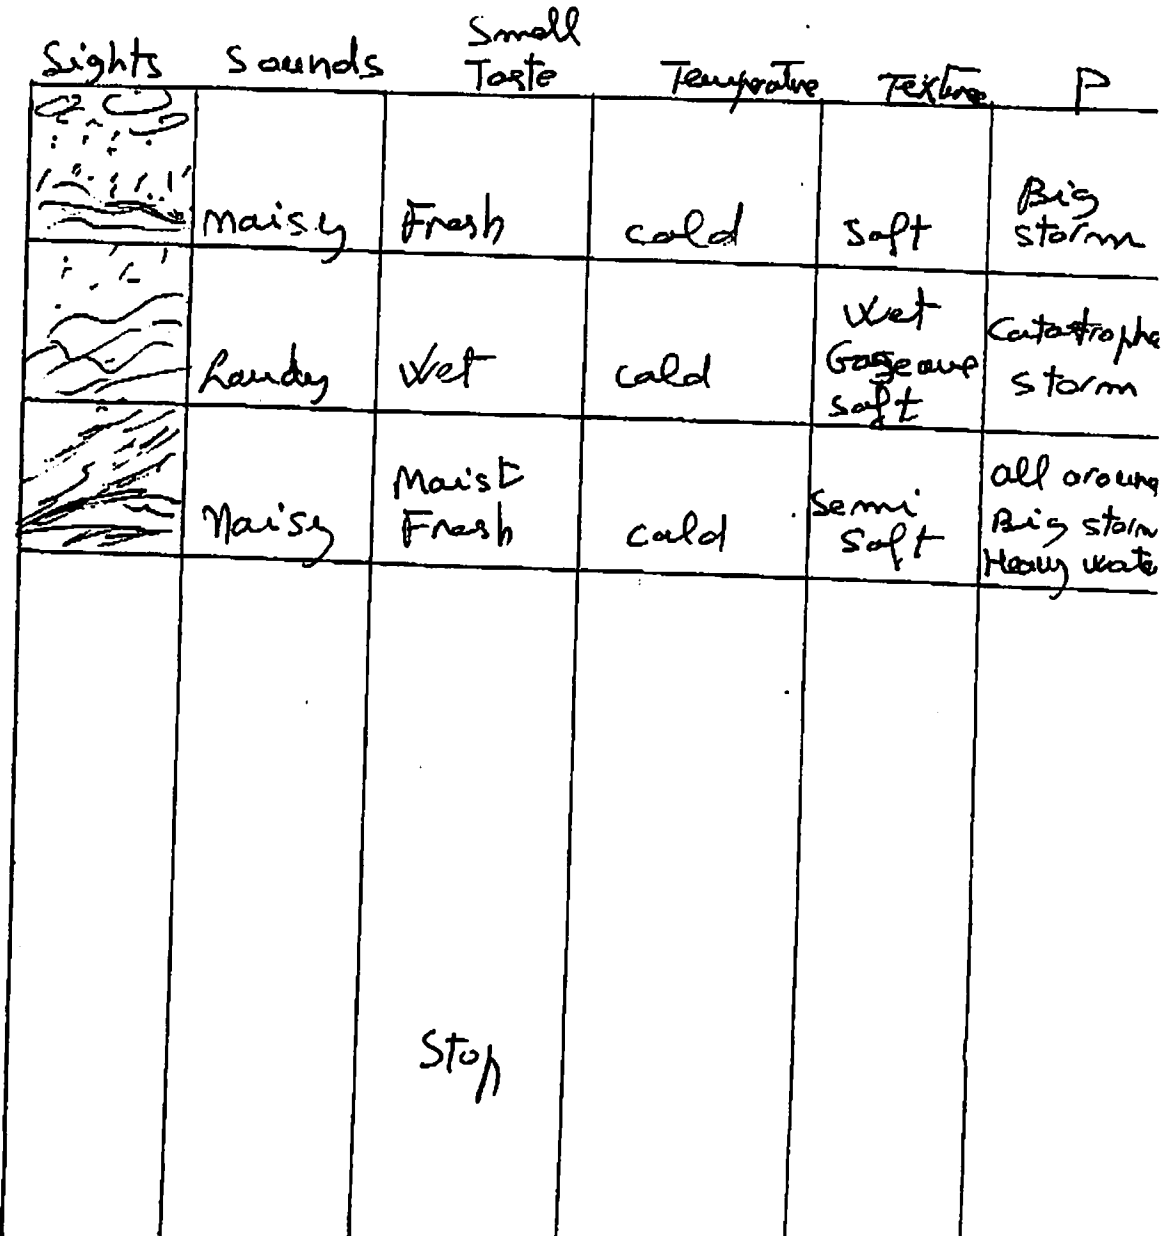 Sights Sounds Smell Taste Temperature Texture P
Noisy Fresh cold Soft Big storm
Loudy Wet cold Wet Gaseous soft Catastrophe storm
Noisy Moist Fresh cold Semi Soft all around Big storm Heavy wate
Stop